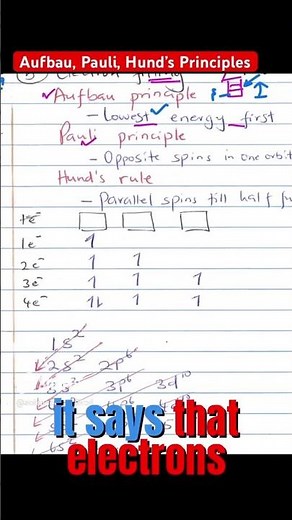 Aufbau, Pauli, Hund's Principles
Electron filling
Aufbau principle
- Lowest energy first
Pauli principle
- Opposite spins in one orbit
Hund's rule
- Parallel spins till half fu
1e⁻ 1
2e⁻ 1 1
3e⁻ 1 1 1
4e⁻ 1↓ 1 1
1s²
2s² 2p⁶
3s² 3p⁶ 3d¹⁰
it says that
electrons
6s²